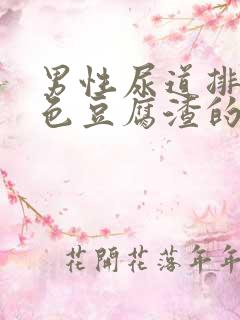 男性尿道排
色豆腐渣的
花開花落年年